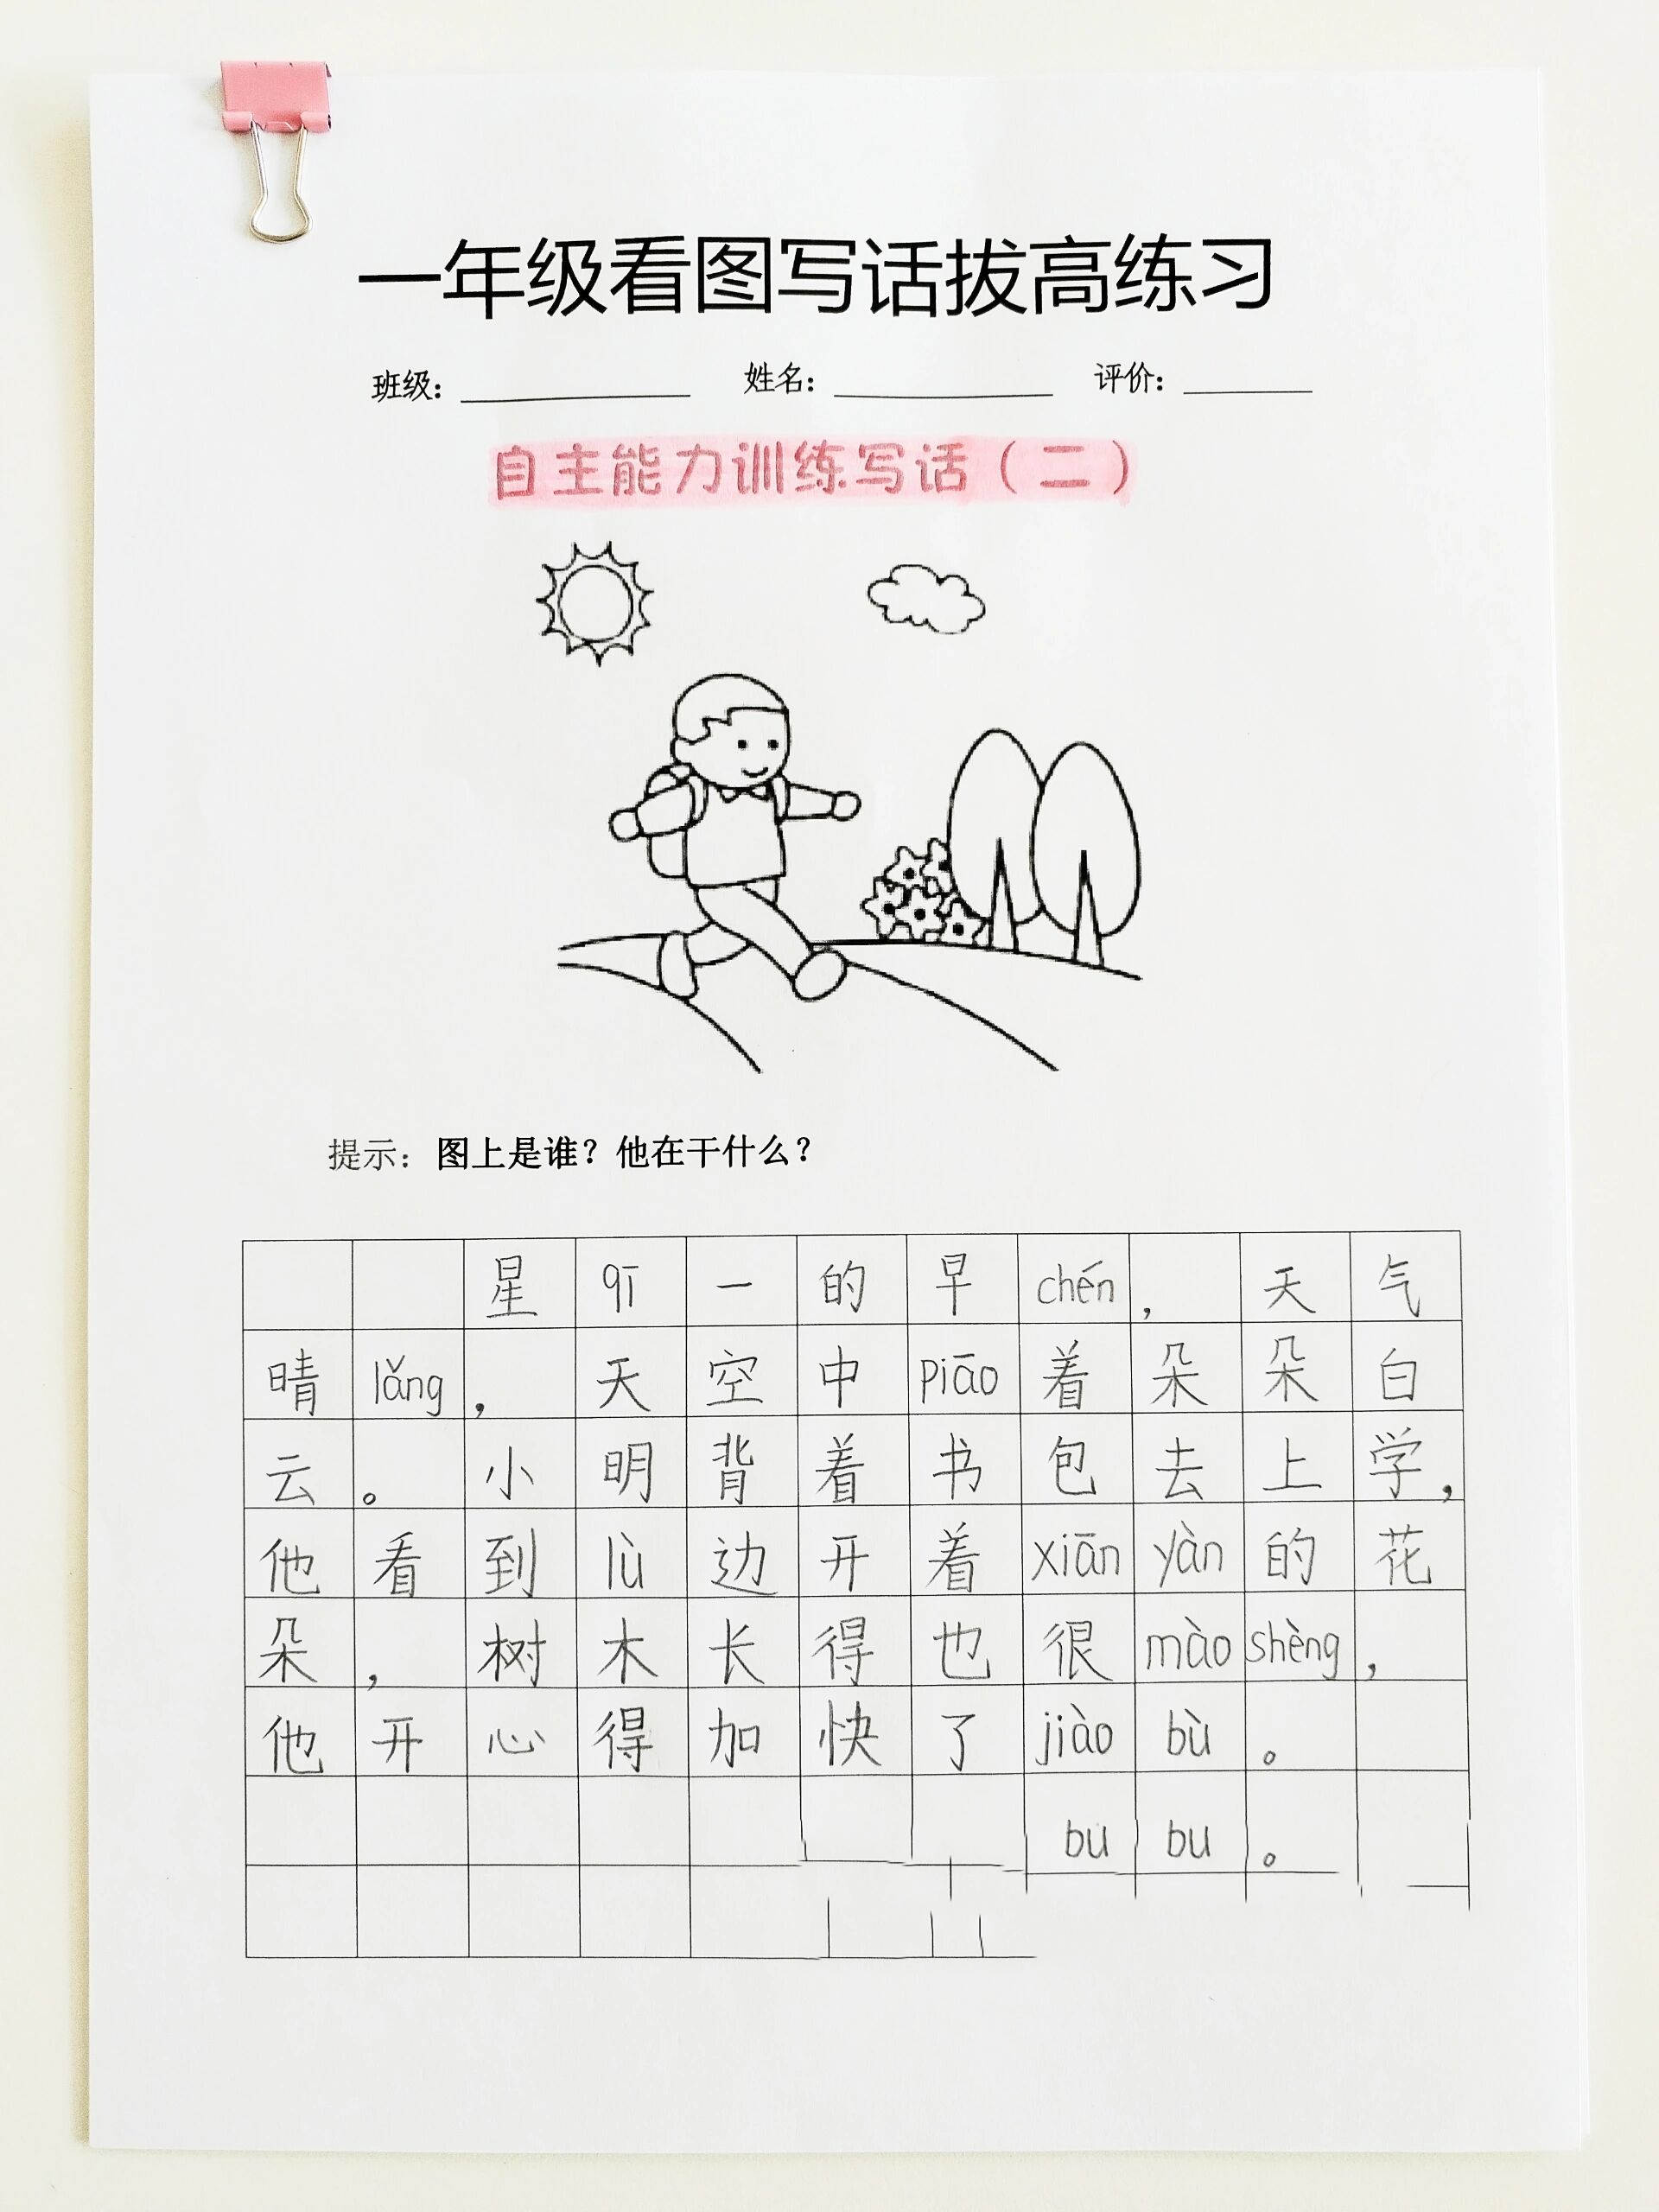 一年级看图写话拔高练习
班级： 姓名： 评价：
自主能力训练写话（二）
提示：图上是谁？他在干什么？
星qī一的早chén，天气
晴lǎng，天空中piāo着朵朵白
云。小明背着书包去上学，
他看到lù边开着xiān yàn的花
朵，树木长得也很mào shèng，
他开心得加快了jiào bù。
bu bu。